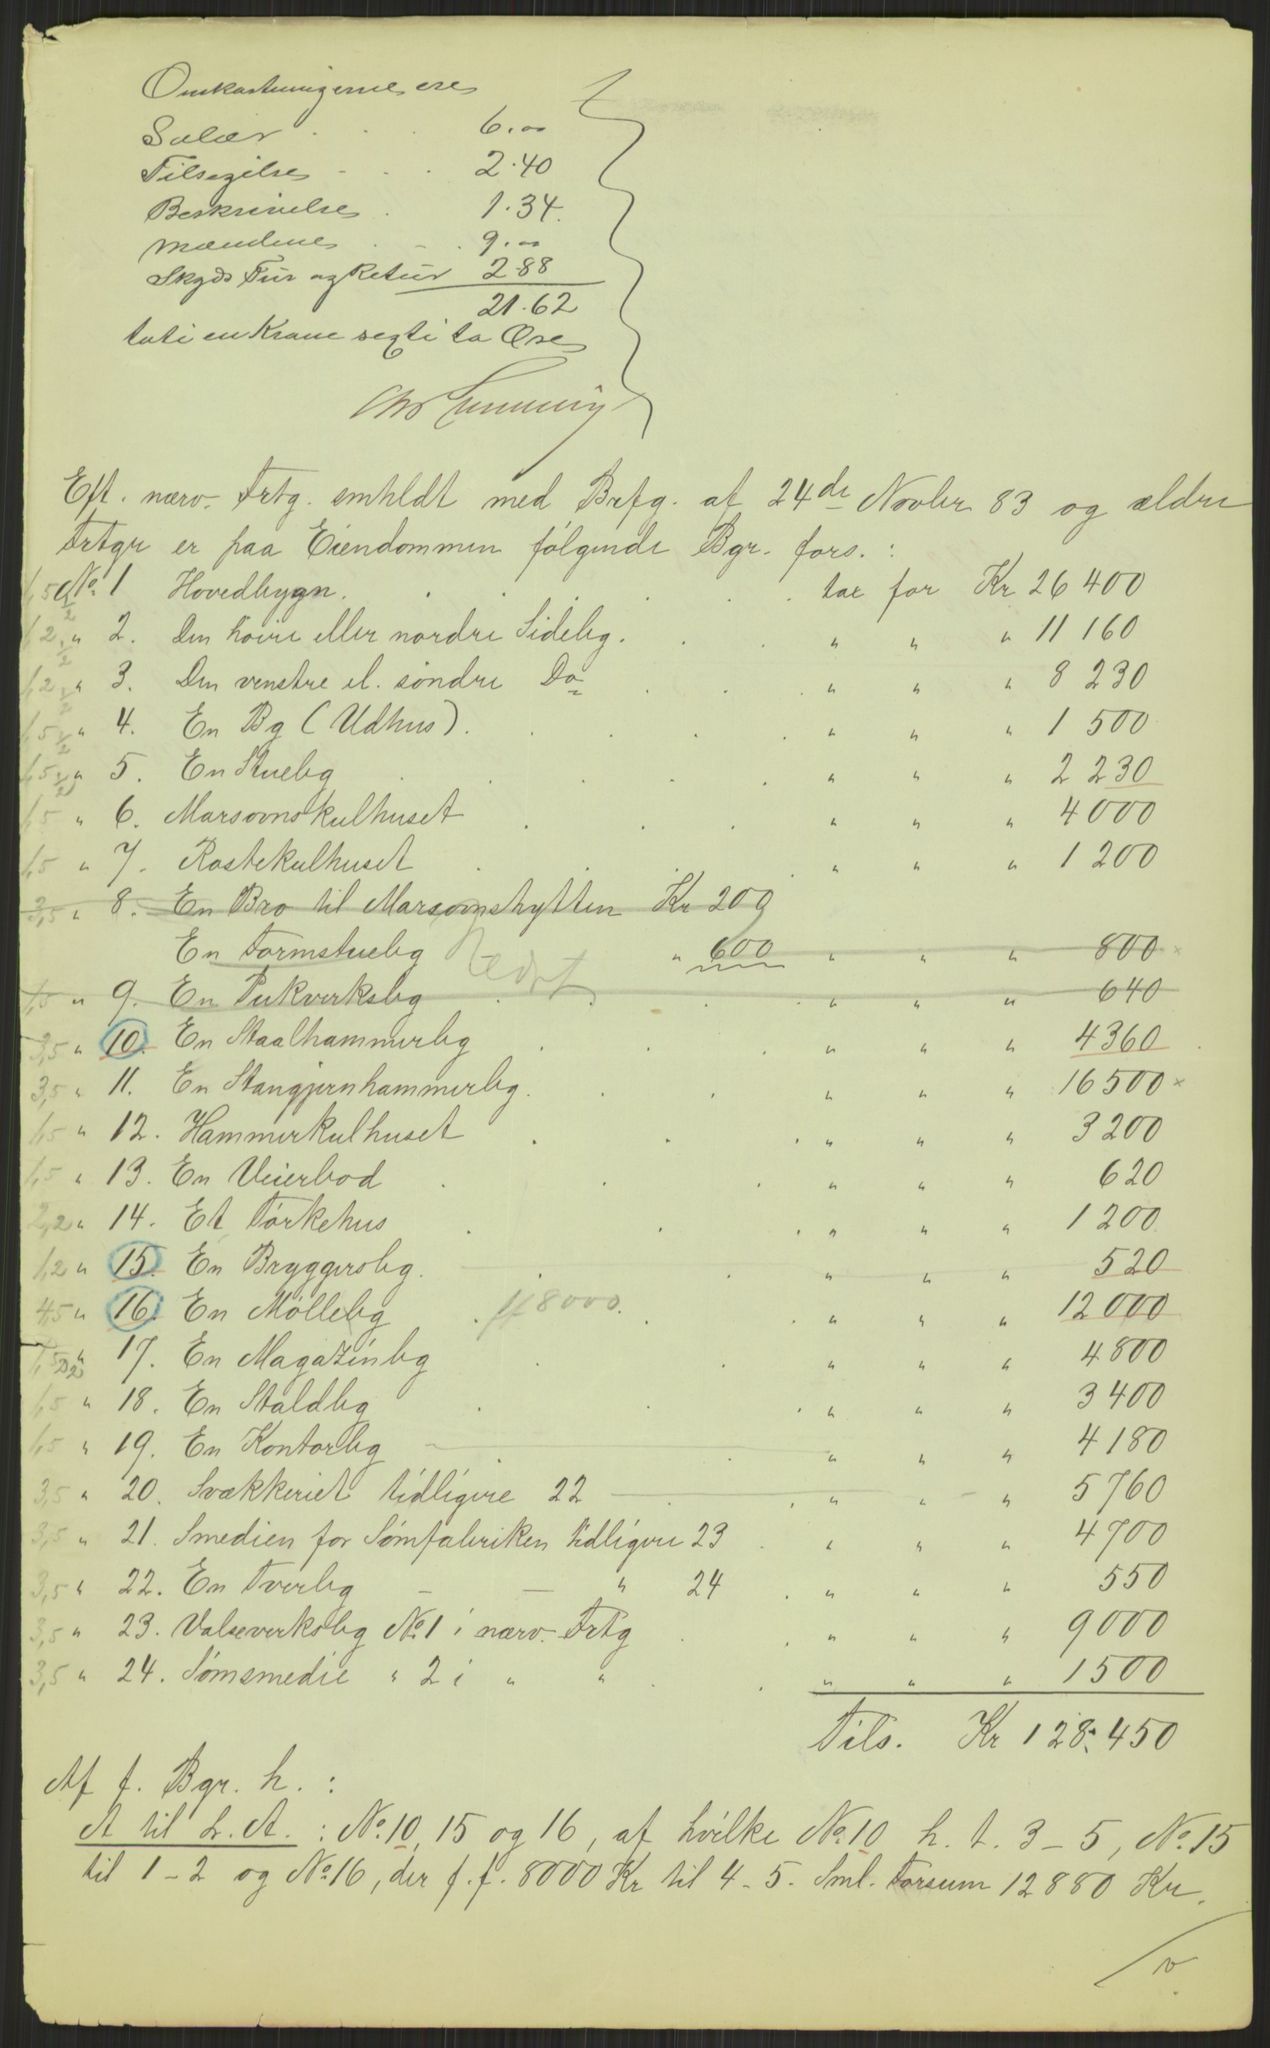 Omkostningerne ere
Salær . . . 6.00
Tilsigelse - . . 2.40
Beskrivelse . 1.34.
Mændene . - . 9.00
Skyds Tur og Retur 2.88
21.62
toti en Krone sexti to Øre
Eft. nærv. Frtg. smhldt med Brfg. af 24de Novbr 83 og ældre
Frtgr er paa Eiendommen følgende Bgr. fors. :
1,5 1/2 No. 1 Hovedbygn. . . . . . tax for Kr 26 400
1,2 1/2 " 2. Den høire eller nordre Sidebg. . . " " " 11 160
1,2 1/2 " 3. Den venstre el. søndre Do . . . " " " 8 230
1,5 1/2 " 4. En Bg (Udhus). . . . . " " " 1 500
1,5 1/2 " 5. En Stuebg . . . . . " " " 2 230
1,5 " 6. Marsovnskulhuset . . . " " " 4000
1,5 " 7. Rostekulhuset . . . . " " " 1 200
3,5 " 8. En Bro til Marsovnshytten Kr 200
En Formstuebg " 600 " " " 800 ×
1,5 " 9. En Pukverksbg . . . " " " 640
3,5 " 10. En Staalhammerbg . . . " " " 4360
3,5 " 11. En Stangjernhammerbg. . . " " " 16 500 ×
1,5 " 12. Hammerkulhuset . . . " " " 3 200
1,5 " 13. En Veierbod . . . " " " 620
2,2 " 14. Et Tørkehus . . . " " " 1 200
1,2 " 15. En Bryggersbg. . . " " " 520
4,5 " 16. En Møllebg . ff 8000. . . " " " 12 000
1,5 " 17. En Magazinbg . . " " " 4 800
1,5 " 18. En Staldbg . . . " " " 3 400
1,5 " 19. En Kontorbg - . " " " 4 180
3,5 " 20. Svækkeriet tidligere 22 . . " " " 5 760
3,5 " 21. Smedien for Sømfabriken tidligere 23 . " " " 4 700
3,5 " 22. En Tverbg - - " 24 . " " " 550
3,5 " 23. Valseverksbg No. 1 i nærv. Frtg . . " " " 9000
3,5 " 24. Sømsmedie " 2 i " " . . " " " 1500
Tils. Kr 128,450
Af f. Bgr. h. :
A til L. A. : No. 10, 15 og 16, af hvilke No. 10 h. t. 3-5, No. 15
til 1-2 og No. 16, der f. f. 8000 Kr til 4-5. Sml. Forsum 12880 Kr.
/v.